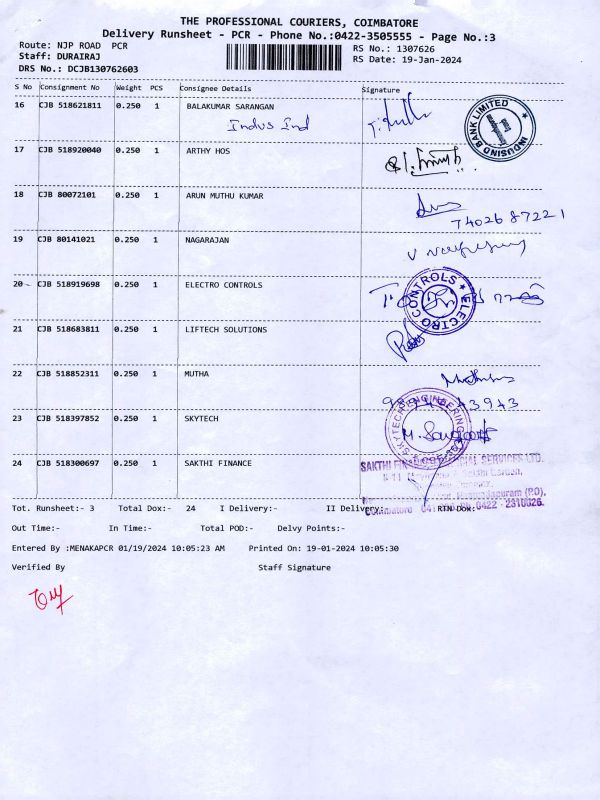 THE PROFESSIONAL COURIERS, COIMBATORE
Delivery Runsheet - PCR - Phone No.:0422-3505555 - Page No.:3
Route: NJP ROAD PCR
RS No.: 1307626
Staff: DURAIRAJ
RS Date: 19-Jan-2024
DRS No.: DCJB130762603
S No Consignment No Weight PCS Consignee Details Signature
16 CJB 518621811 0.250 1 BALAKUMAR SARANGAN
Indus Ind
INDUSIND BANK LIMITED
17 CJB 518920040 0.250 1 ARTHY HOS
18 CJB 80072101 0.250 1 ARUN MUTHU KUMAR
7402687221
19 CJB 80141021 0.250 1 NAGARAJAN
20 CJB 518919698 0.250 1 ELECTRO CONTROLS
ELECTRO CONTROLS
21 CJB 518683811 0.250 1 LIFTECH SOLUTIONS
22 CJB 518852311 0.250 1 MUTHA
23 CJB 518397852 0.250 1 SKYTECH
SKYTECH ENGINEERING
24 CJB 518300697 0.250 1 SAKTHI FINANCE
SAKTHI FINANCIAL SERVICES LTD.
Coimbatore
0422 - 2310626.
Tot. Runsheet:- 3 Total Dox:- 24 I Delivery:- II Delivery:- RTN Dox:-
Out Time:- In Time:- Total POD:- Delvy Points:-
Entered By :MENAKAPCR 01/19/2024 10:05:23 AM Printed On: 19-01-2024 10:05:30
Verified By Staff Signature